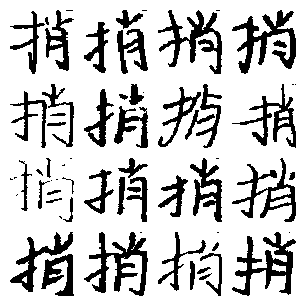 捎捎捎捎
捎捎捎捎
捎捎捎捎
捎捎捎捎